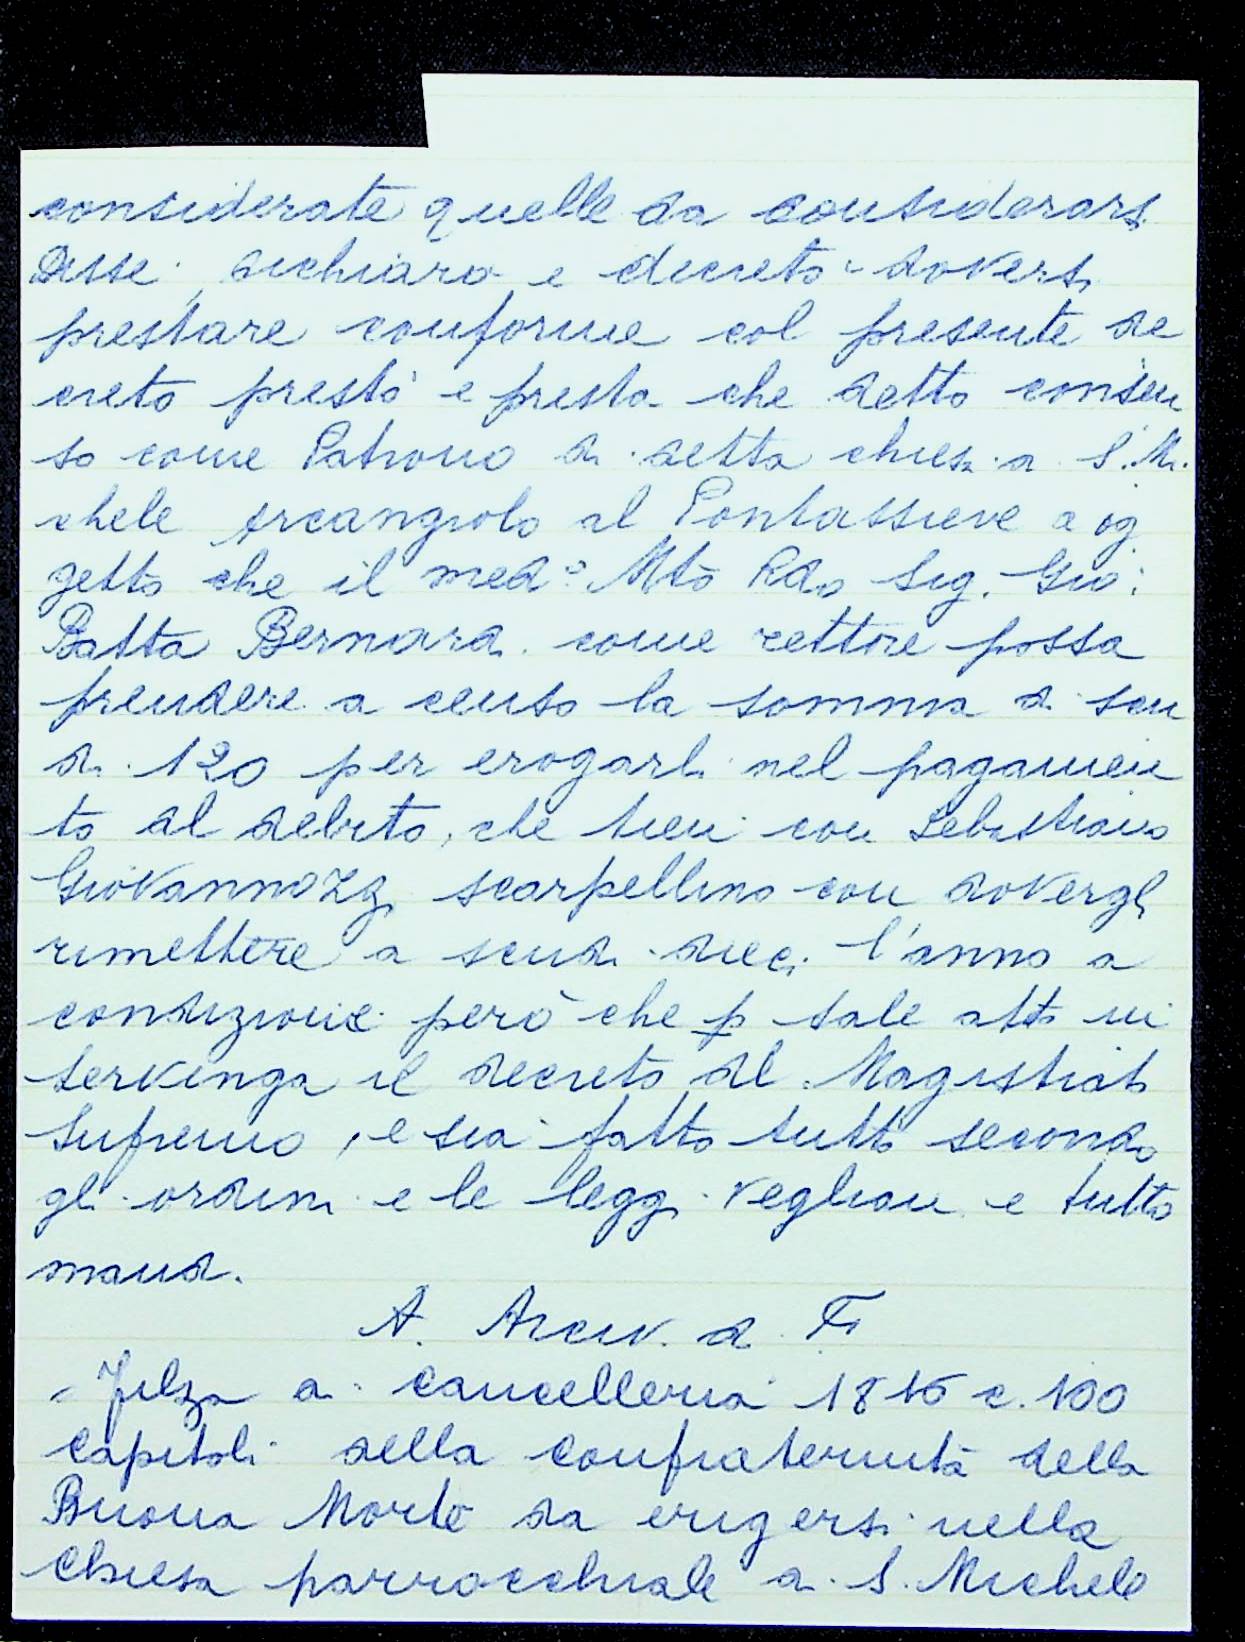 considerate quelle da considerarsi
Disse, dichiarò e decretò doversi
prestare conforme col presente de
creto prestò e presta che detto consen
so come Patrono di detta chiesa di S. Mi
chele Arcangiolo al Pontassieve a og
getto che il med.º Mtò Rdo Sig. Gio:
Batta Bernardi come rettore possa
prendere a censo la somma di scu
di 120 per erogarli nel pagamen
to al debito, che tien con Sebastiano
Giovannozzi scarpellino con dovergli
rimettere a scudi dieci l'anno a
condizione però che p tale atto vi
servenga il decreto del Magistrato
Supremo, e sia fatto tutto secondo
gli ordini e le leggi veglian e tutto
mand.
A. Arciv. di Fi
Filza di cancelleria 1816 c. 100
Capitoli della confraternita della
Buona Morte da erigersi nella
Chiesa parrocchiale di S. Michele